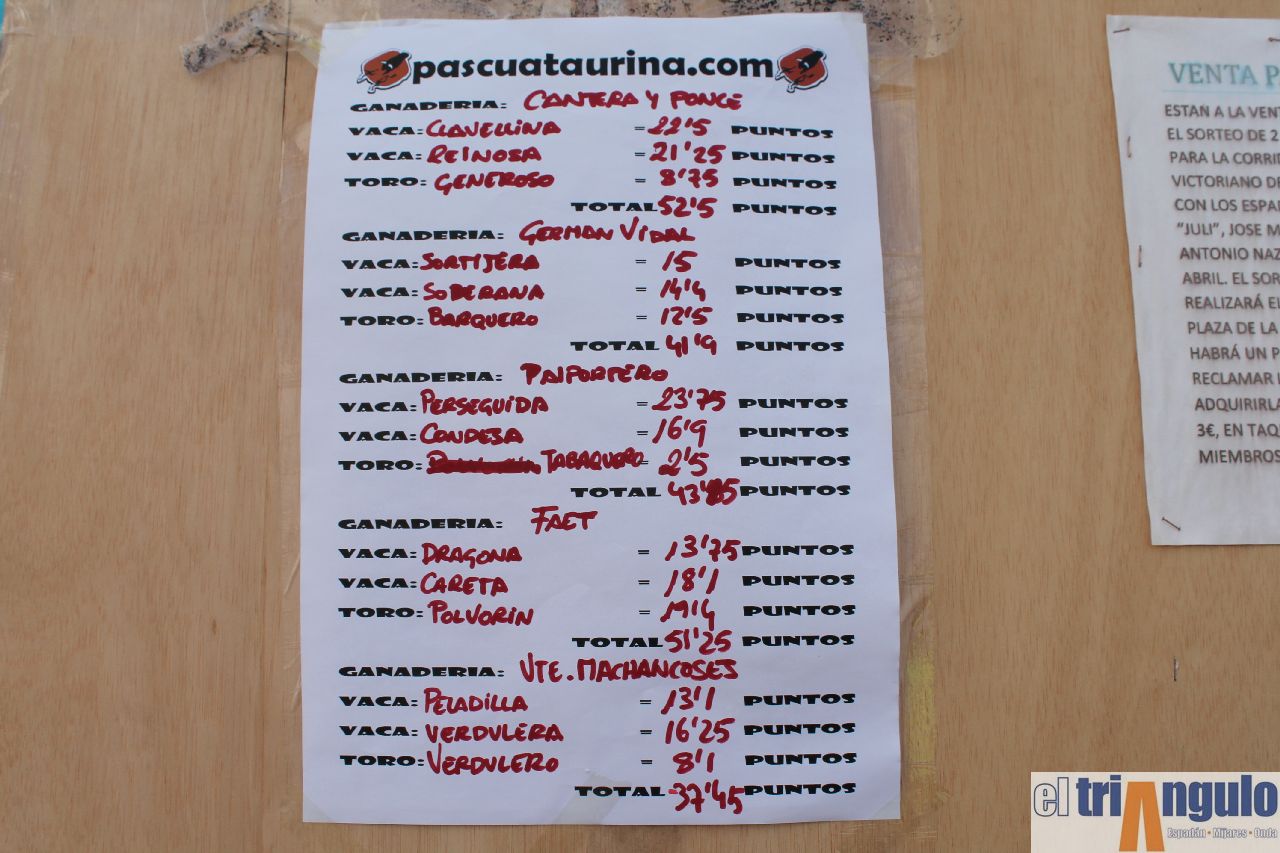 pascuataurina.com
GANADERIA: CANTERA Y PONCE
VACA: CLAVELLINA = 22'5 PUNTOS
VACA: REINOSA = 21'25 PUNTOS
TORO: GENEROSO = 8'75 PUNTOS
TOTAL 52'5 PUNTOS
GANADERIA: GERMAN VIDAL
VACA: SORTIJERA = 15 PUNTOS
VACA: SOBERANA = 14'4 PUNTOS
TORO: BARQUERO = 12'5 PUNTOS
TOTAL 41'9 PUNTOS
GANADERIA: PAIPORTERO
VACA: PERSEGUIDA = 23'75 PUNTOS
VACA: CONDESA = 16'9 PUNTOS
TORO: TABAQUERO = 2'5 PUNTOS
TOTAL PUNTOS
GANADERIA: FAET
VACA: DRAGONA = 13'75 PUNTOS
VACA: CARETA = 18'1 PUNTOS
TORO: POLVORIN = 19'4 PUNTOS
TOTAL 51'25 PUNTOS
GANADERIA: VTE. MACHANCOSES
VACA: PELADILLA = 13'1 PUNTOS
VACA: VERDULERA = 16'25 PUNTOS
TORO: VERDULERO = 8'1 PUNTOS
TOTAL 37'45 PUNTOS
VENTA P
ESTAN A LA VENT
EL SORTEO DE 2
PARA LA CORRID
VICTORIANO DE
CON LOS ESPAD
"JULI", JOSE M
ANTONIO NAZ
ABRIL. EL SOR
REALIZARÁ EL
PLAZA DE LA
HABRÁ UN P
RECLAMAR
ADQUIRIRLA
3€, EN TAQ
MIEMBROS
el triAngulo
Espadán • Mijares • Onda